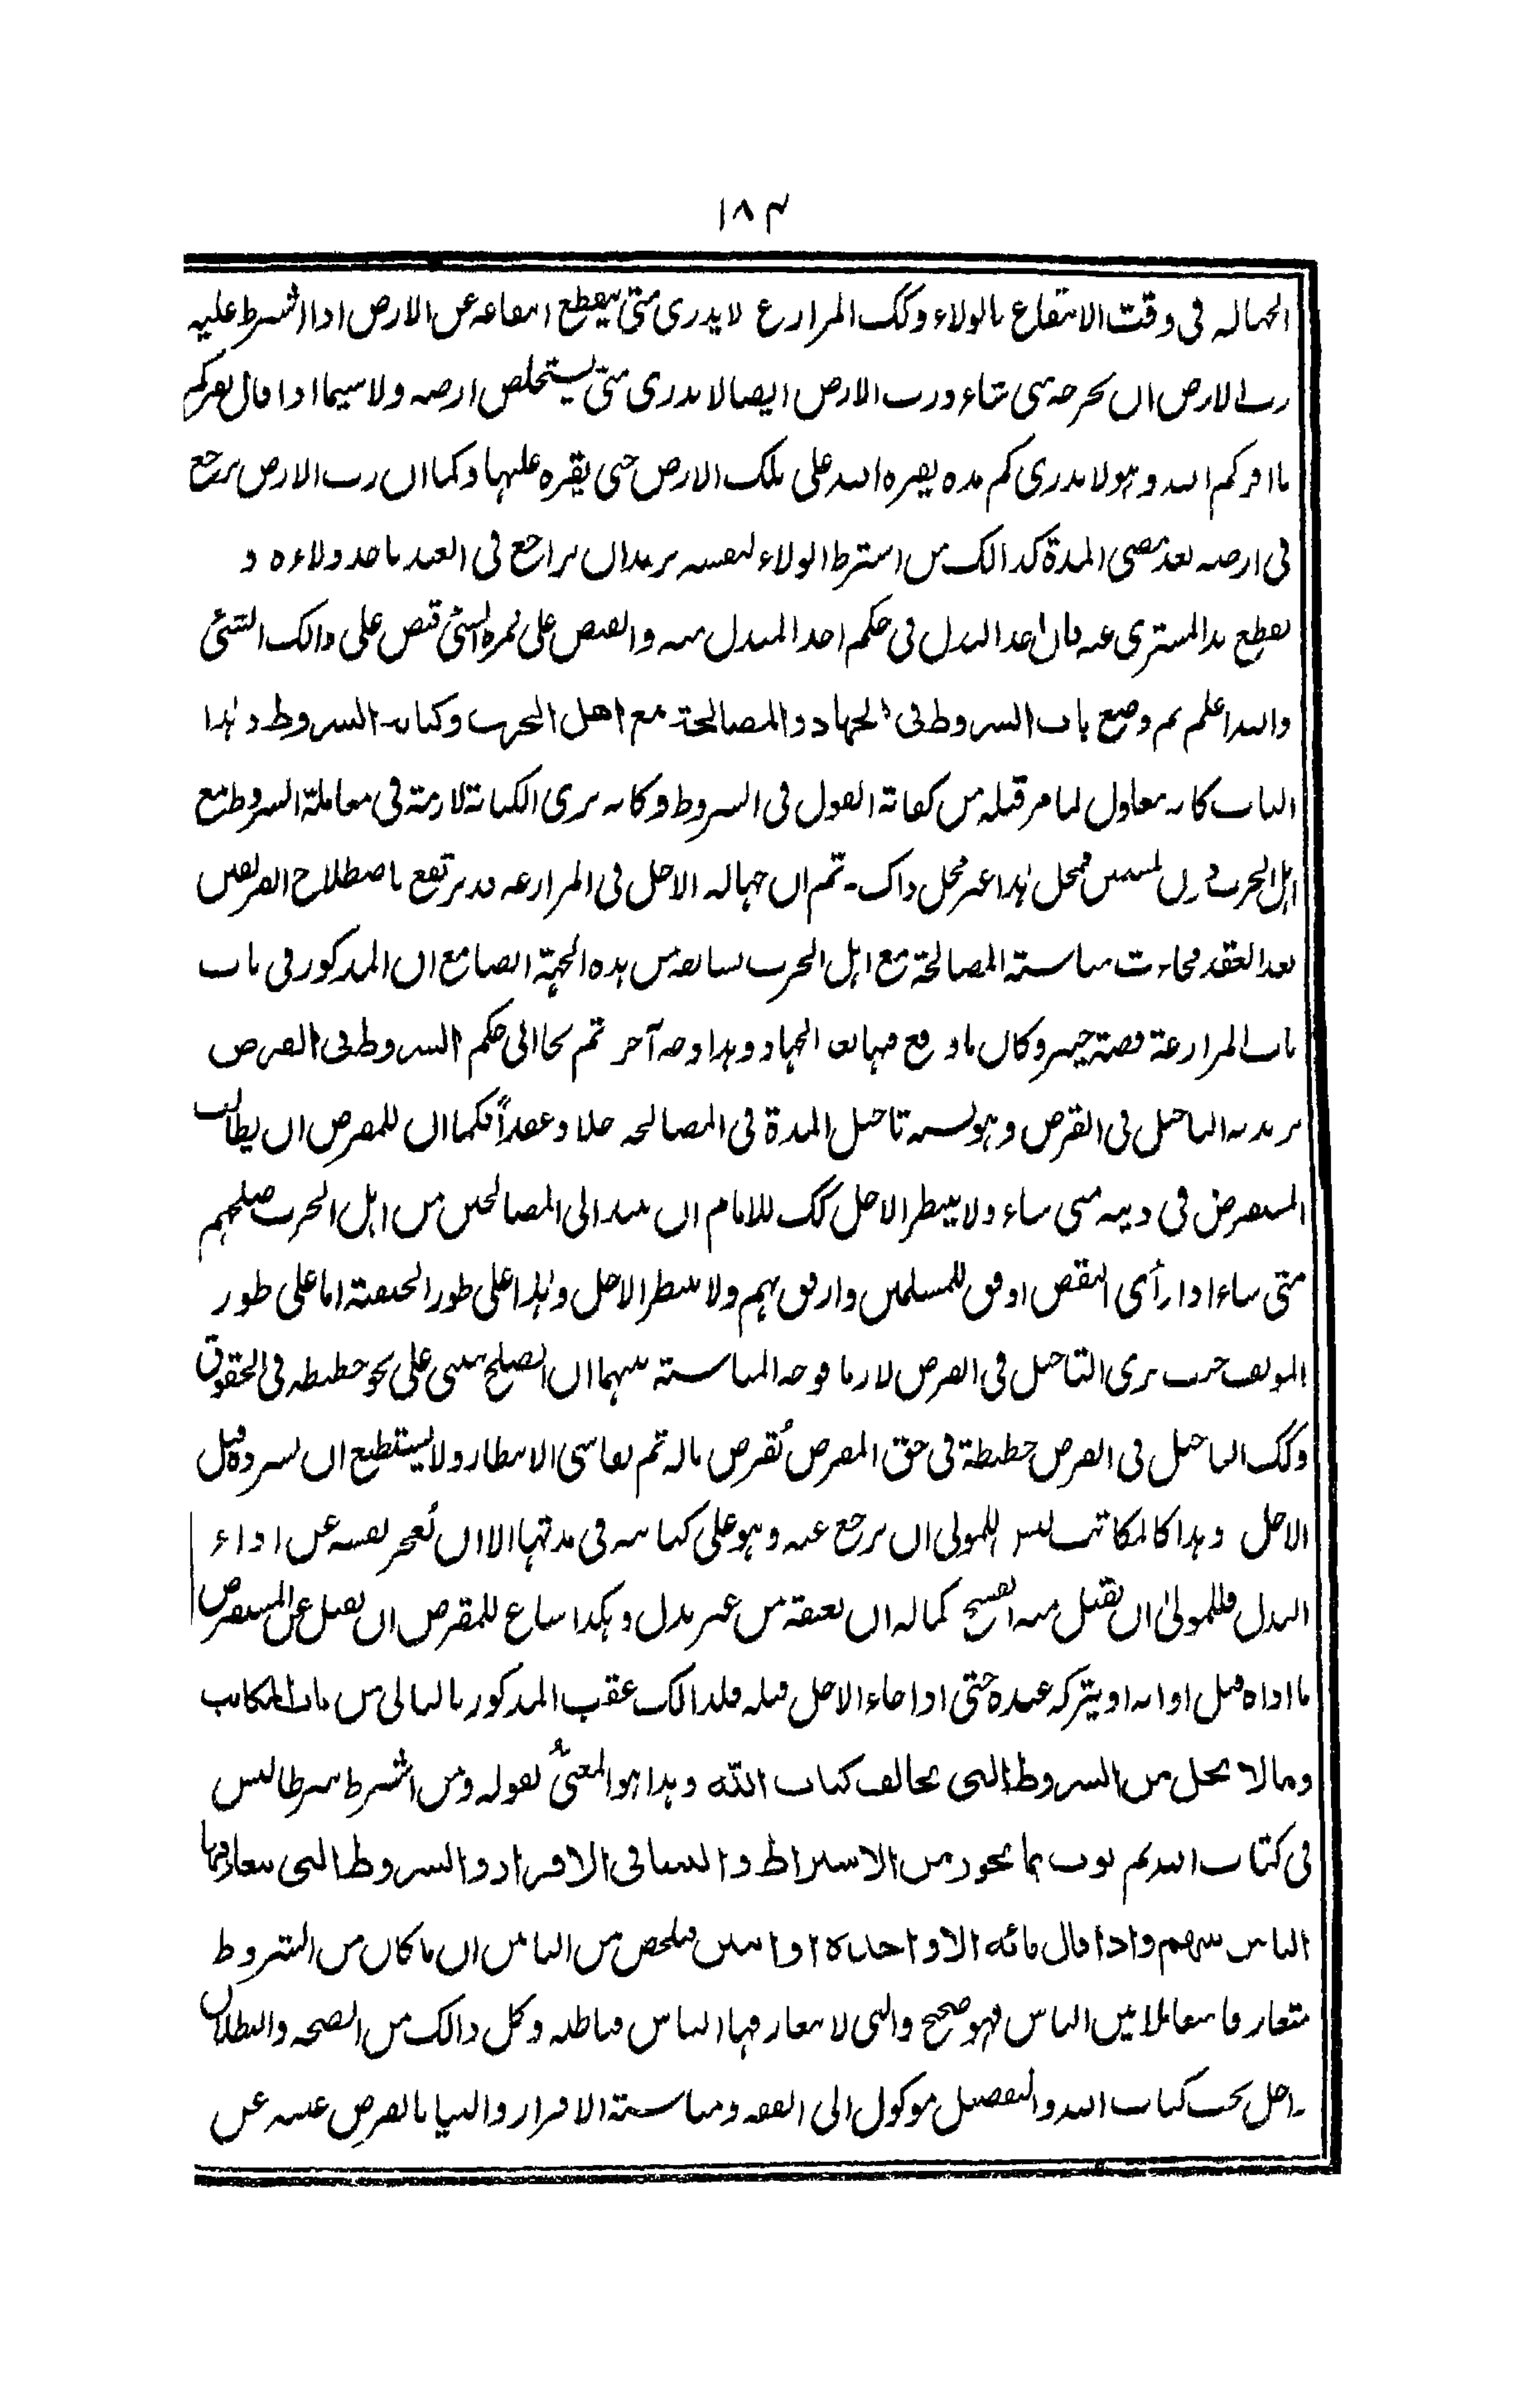 ١٨٣
الجهالة فى وقت الانتفاع بالولاء وكك المزارع لا يدرى متى ينقطع انتفاعه عن الارض اذا اشترط عليه
رب الارض ان يخرجه متى شاء ورب الارض ايضا لا يدرى متى يستخلص ارضه ولا سيما اذا قال نقركم
ما اقركم الله وهو لا يدرى كم مدة يقره الله على تلك الارض حتى يقره عليها وكما ان رب الارض يرجع
فى ارضه بعد مضى المدة كذالك من اشترط الولاء لنفسه يريد ان يراجع فى العبد باخذ ولاءه و
يقطع يد المشترى عنه فان اخذ البدل فى حكم اخذ المبدل منه والقبض على ثمرة الشئ قبض على ذالك الشئ
والله اعلم ثم وضع باب الشروط فى الجهاد والمصالحة مع اهل الحرب وكتابة الشروط وهذا
الباب كانه معادل لما مر قبله من كفاية القول فى الشروط وكانه يرى الكتابة لازمة فى معاملة الشروط مع
اهل الحرب دون المسلمين فمحل هذا غير محل ذاك ـ ثم ان جهالة الاجل فى المزارعة قد يرتفع باصطلاح الفريقين
بعد العقد فجاءت مناسبة المصالحة مع اهل الحرب لسابقه من هذه الجهة ايضا مع ان المذكور فى باب
باب المزارعة قصة خيبر وكان ما وقع فيها الجهاد وهذا وجه آخر ثم نحا الى حكم الشروط فى القرض
يريد به التاجيل فى القرض وهو يشبه تاجيل المدة فى المصالحة حلا وعقداً فكما ان للمقرض ان يطالب
المستقرض فى دينه متى شاء ولا ينتظر الاجل كك للامام ان ينبذ الى المصالحين من اهل الحرب صلحهم
متى شاء اذا رأى النقض اوفق للمسلمين وارفق بهم ولا ينتظر الاجل وهذا على طور الحنفية اما على طور
المؤلف حيث يرى التاجيل فى القرض لازما فوجه المناسبة بينهما ان الصلح يبنى على نحو حطيطة فى الحقوق
وكك التاجيل فى القرض حطيطة فى حق المقرض يُقرض ماله ثم يقاسى الانتظار ولا يستطيع ان يسترده قبل
الاجل وهذا كالمكاتب ليس للمولى ان يرجع عنه وهو على كتابته فى مدتها الا ان يُعجز نفسه عن اداء
البدل فللمولىٰ ان يقبل منه الفسخ كما له ان يعتقه من غير بدل وهكذا ساغ للمقرض ان يقبل عن المستقرض
ما اداه قبل اوانه او يتركه عنده حتى اذا جاء الاجل قبله فلذالك عقب المذكور بالتالى من باب المكاتب
وما لا يحل من الشروط التى تخالف كتاب اللّه وهذا هو المعنىُّ بقوله ومن اشترط شرطا ليس
فى كتاب الله ثم بوب بما يجوز من الاشتراط والثنيا فى الاقرار والشروط التى يتعارفها
الناس بينهم واذا قال مائه الا واحدة او اثنين فلخص من البابين ان ما كان من الشروط
متعارفا متعاملا بين الناس فهو صحيح والتى لا يتعارفها الناس فباطله وكل ذالك من الصحه والبطلان
داخل تحت كتاب الله والتفصيل موكول الى الفقه ومناسبة الاقرار والثنيا بالقرض غنية عن